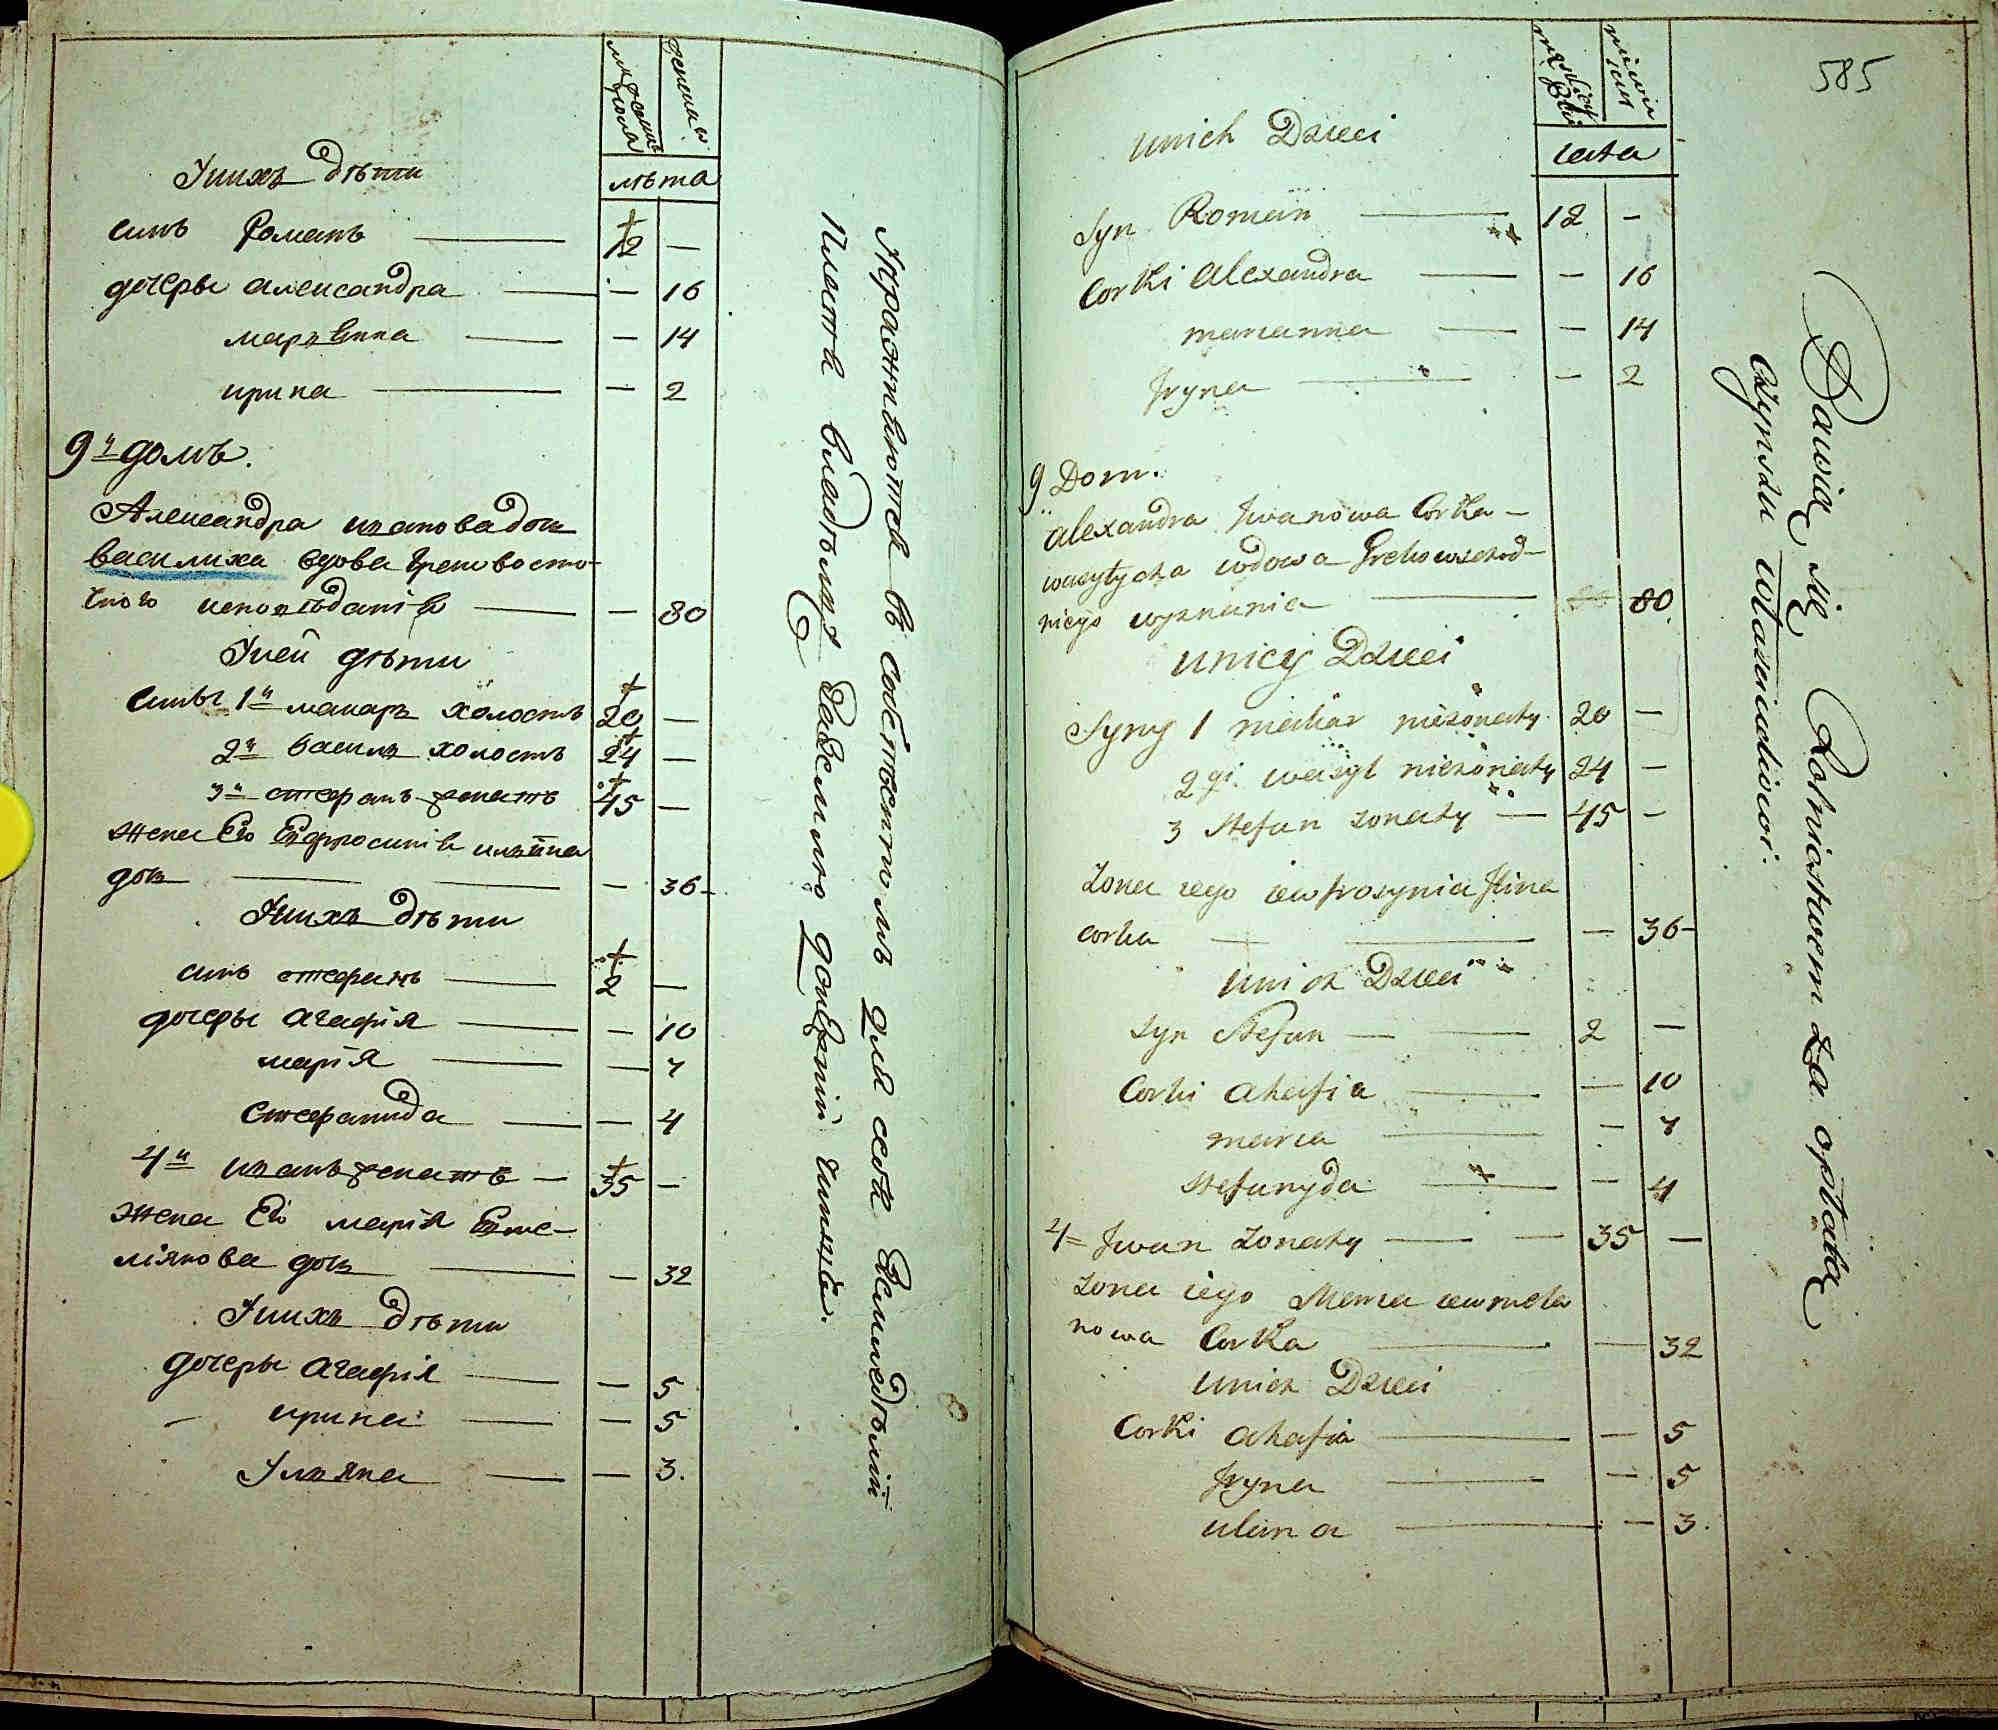 мужеск пола
женска
лѣта
У нихъ дѣти
синъ Романъ — 12 —
дочеры александра — — 16
марьянна — — 14
ирина — — 2
9й домъ.
Александра иванова дочь
василиха вдова Грековосто-
чного исповѣданія — — 80
У ней дѣти
сины 1й макаръ холостъ 20 —
2й василь холостъ 24 —
3й стефанъ женатъ 45 —
жена Его Евфросинія ильина
дочь — — — 36
У нихъ дѣти
синъ стефанъ — 2 —
дочеры агафія — — 10
марія — — 7
Стефанида — — 4
4й иванъ женатъ — 35 —
жена Его марія Емe-
ліянова дочь — — 32
У нихъ дѣти
дочеры агафія — — 5
ирина — — 5
Ульяна — — 3.
Упражняются въ собственномъ для себя Земледѣліи
Платя владѣльцу за землю
585
męskiey płci
lata
unich Dzieci
Syn Roman — 12 —
Corki alexandra — — 16
marianna — — 14
Jryna — — 2
9 Dom.
alexandra Jwanowa Corka —
wasylycha wdowa Grekowschod-
niego wyznania — 80
unicy Dzieci
Syny 1 makar nieżonaty 20 —
2gi wasyl nieżonaty 24 —
3 Stefan żonaty — 45 —
Żona iego iewfrosynia Jlina
corka — — — 36
unich Dzieci
Syn Stefan — — 2 —
Corki ahafia — — 10
maria — — 7
Stefanyda — — 4
4 Jwan żonaty — — 35 —
żona iego Maria iewmela
nowa Corka — — 32
unich Dzieci
Corki ahafia — — 5
Jryna — — 5
ulana — — 3.
Bawią się Rolnictwem Za opłatą
Czynszu właścicielowi.